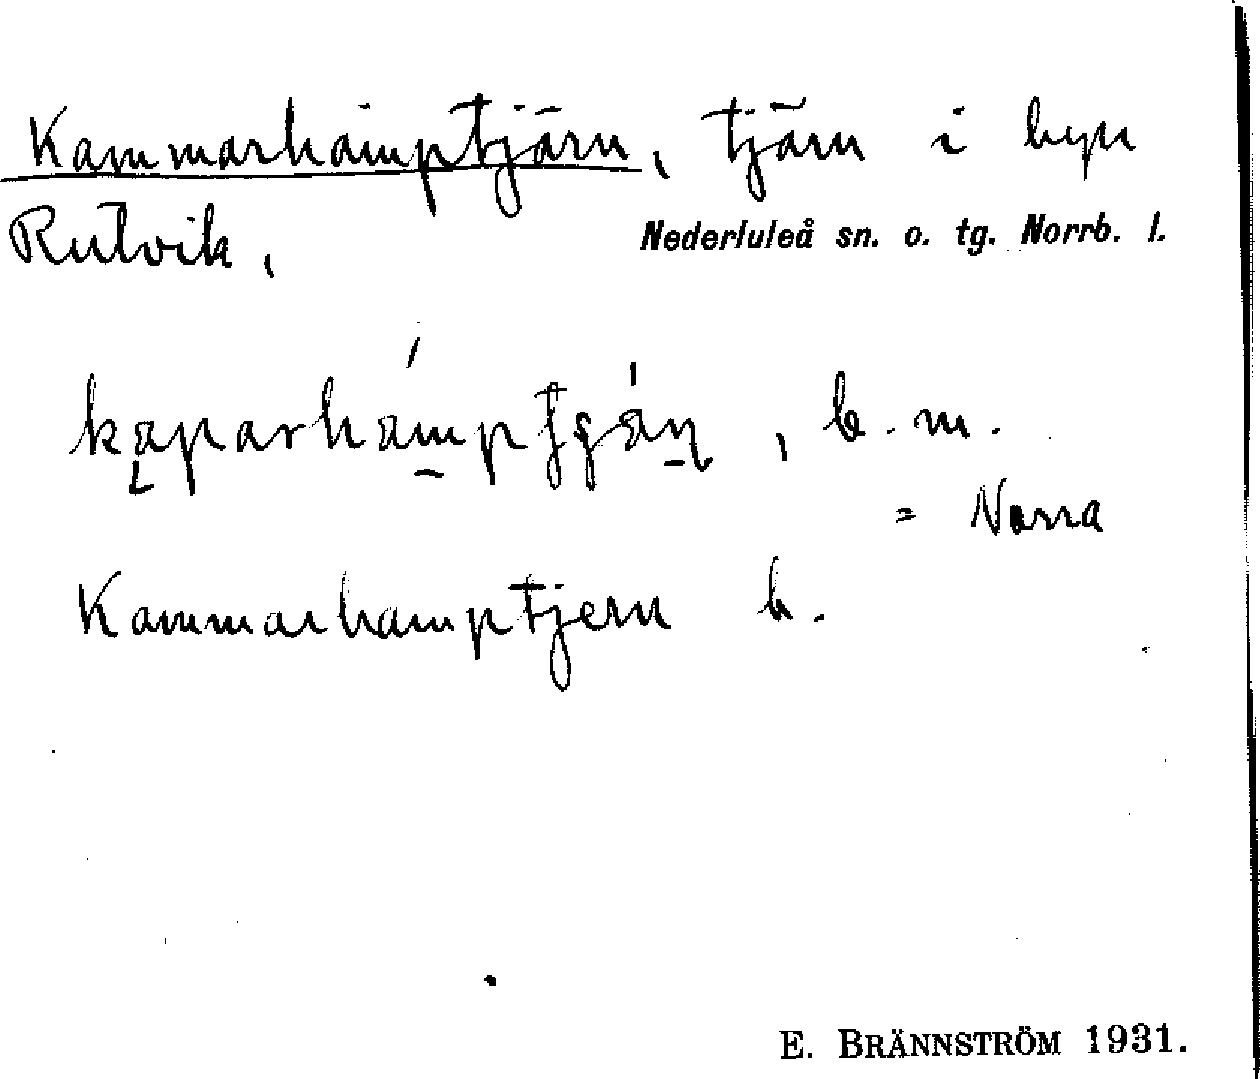 Kammarhamptjärn, tjärn i byn
Rutvik, Nederluleå sn. o. tg. Norrb. l.
, b. m.
= Norra
Kammarhamptjern k.
E. BRÄNNSTRÖM 1931.